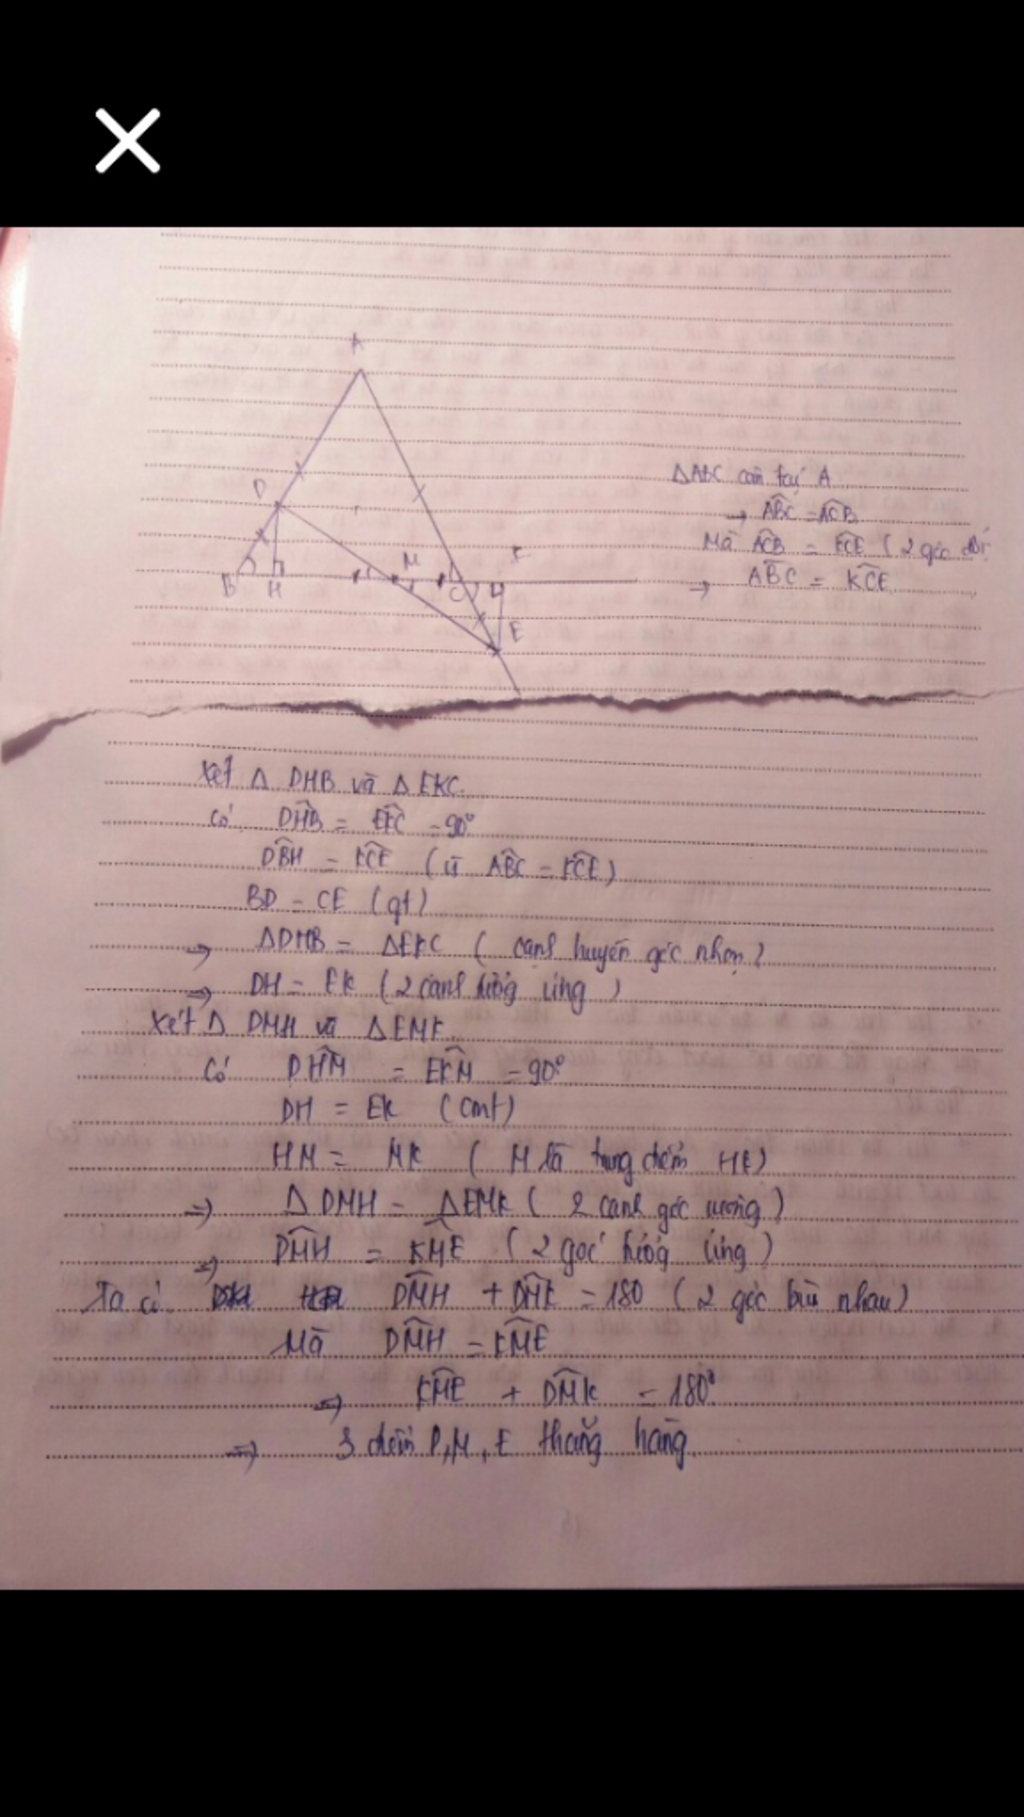 A
D
M
K
B
H
C
E
ΔABC cân tại A
→ ABC = ACB
Mà ACB = KCE ( 2 góc đối
→ ABC = KCE
Xét Δ DHB và Δ EKC
Có DHB = EKC = 90°
DBH = KCE ( vì ABC = KCE )
BD = CE (gt)
⇒ ΔDHB = ΔEKC ( cạnh huyền góc nhọn )
⇒ DH = EK ( 2 cạnh tương ứng )
Xét Δ DMH và ΔEMK
Có DHM = EKM = 90°
DH = EK (cmt)
HM = MK ( M là trung điểm HK )
⇒ Δ DMH = ΔEMK ( 2 cạnh góc vuông )
⇒ DMH = KME ( 2 góc tương ứng )
Ta có DMH + DMK = 180 ( 2 góc bù nhau )
Mà DMH = KME
⇒ KME + DMK = 180°
⇒ 3 điểm D, M, E thẳng hàng